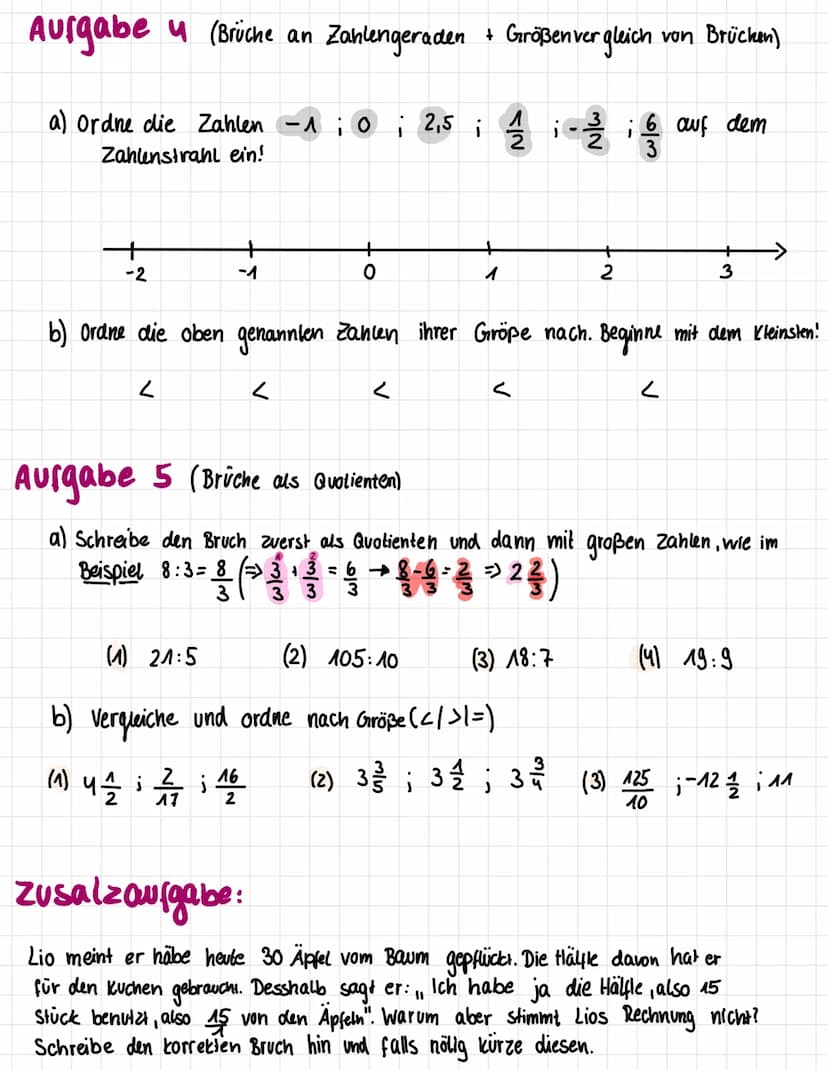 Aufgabe 4 (Brüche an Zahlengeraden + Größenvergleich von Brüchen)
a) Ordne die Zahlen -1 ; 0 ; 2,5 ; 1/2 ; -3/2 ; 6/3 auf dem
Zahlenstrahl ein!
-2 -1 0 1 2 3
b) Ordne die oben genannten Zahlen ihrer Größe nach. Beginne mit dem Kleinsten!
< < < < <
Aufgabe 5 (Brüche als Quotienten)
a) Schreibe den Bruch zuerst als Quotienten und dann mit großen Zahlen, wie im
Beispiel 8:3 = 8/3 (⇒ 1 3/3 + 2 3/3 = 6/3 → 8/3 - 6/3 = 2/3 ⇒ 2 2/3)
(1) 21:5 (2) 105:10 (3) 18:7 (4) 19:9
b) Vergleiche und ordne nach Größe (</>/=)
(1) 4 1/2 ; 2/17 ; 16/2 (2) 3 3/5 ; 3 1/2 ; 3 3/4 (3) 125/10 ; -12 1/2 ; 11
Zusatzaufgabe:
Lio meint er habe heute 30 Äpfel vom Baum gepflückt. Die Hälfte davon hat er
für den Kuchen gebraucht. Desshalb sagt er: „Ich habe ja die Hälfte, also 15
Stück benutzt, also 15/1 von den Äpfeln". Warum aber stimmt Lios Rechnung nicht?
Schreibe den korrekten Bruch hin und falls nötig kürze diesen.